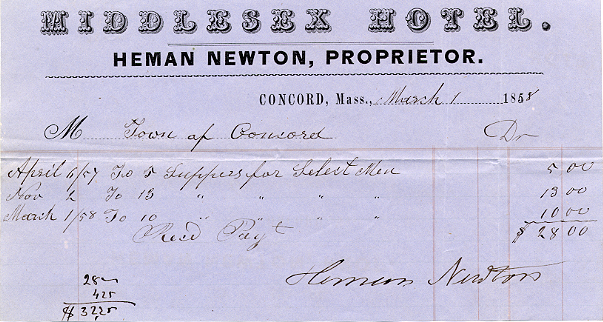 MIDDLESEX HOTEL.
HEMAN NEWTON, PROPRIETOR.
CONCORD, Mass., March 1 1858
M Town of Concord Dr
April 6/57 To 5 Suppers for Select Men 5 00
Nov 2 To 13 " " " " 13 00
March 1/58 To 10 " " " " 10 00
Recd Payt $ 28.00
Heman Newton
28
425
$ 32,25